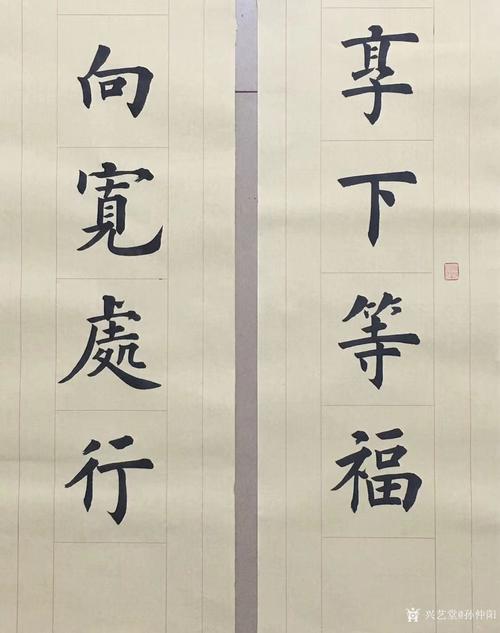 享下等福
向寬處行
兴艺堂@孙仲阳